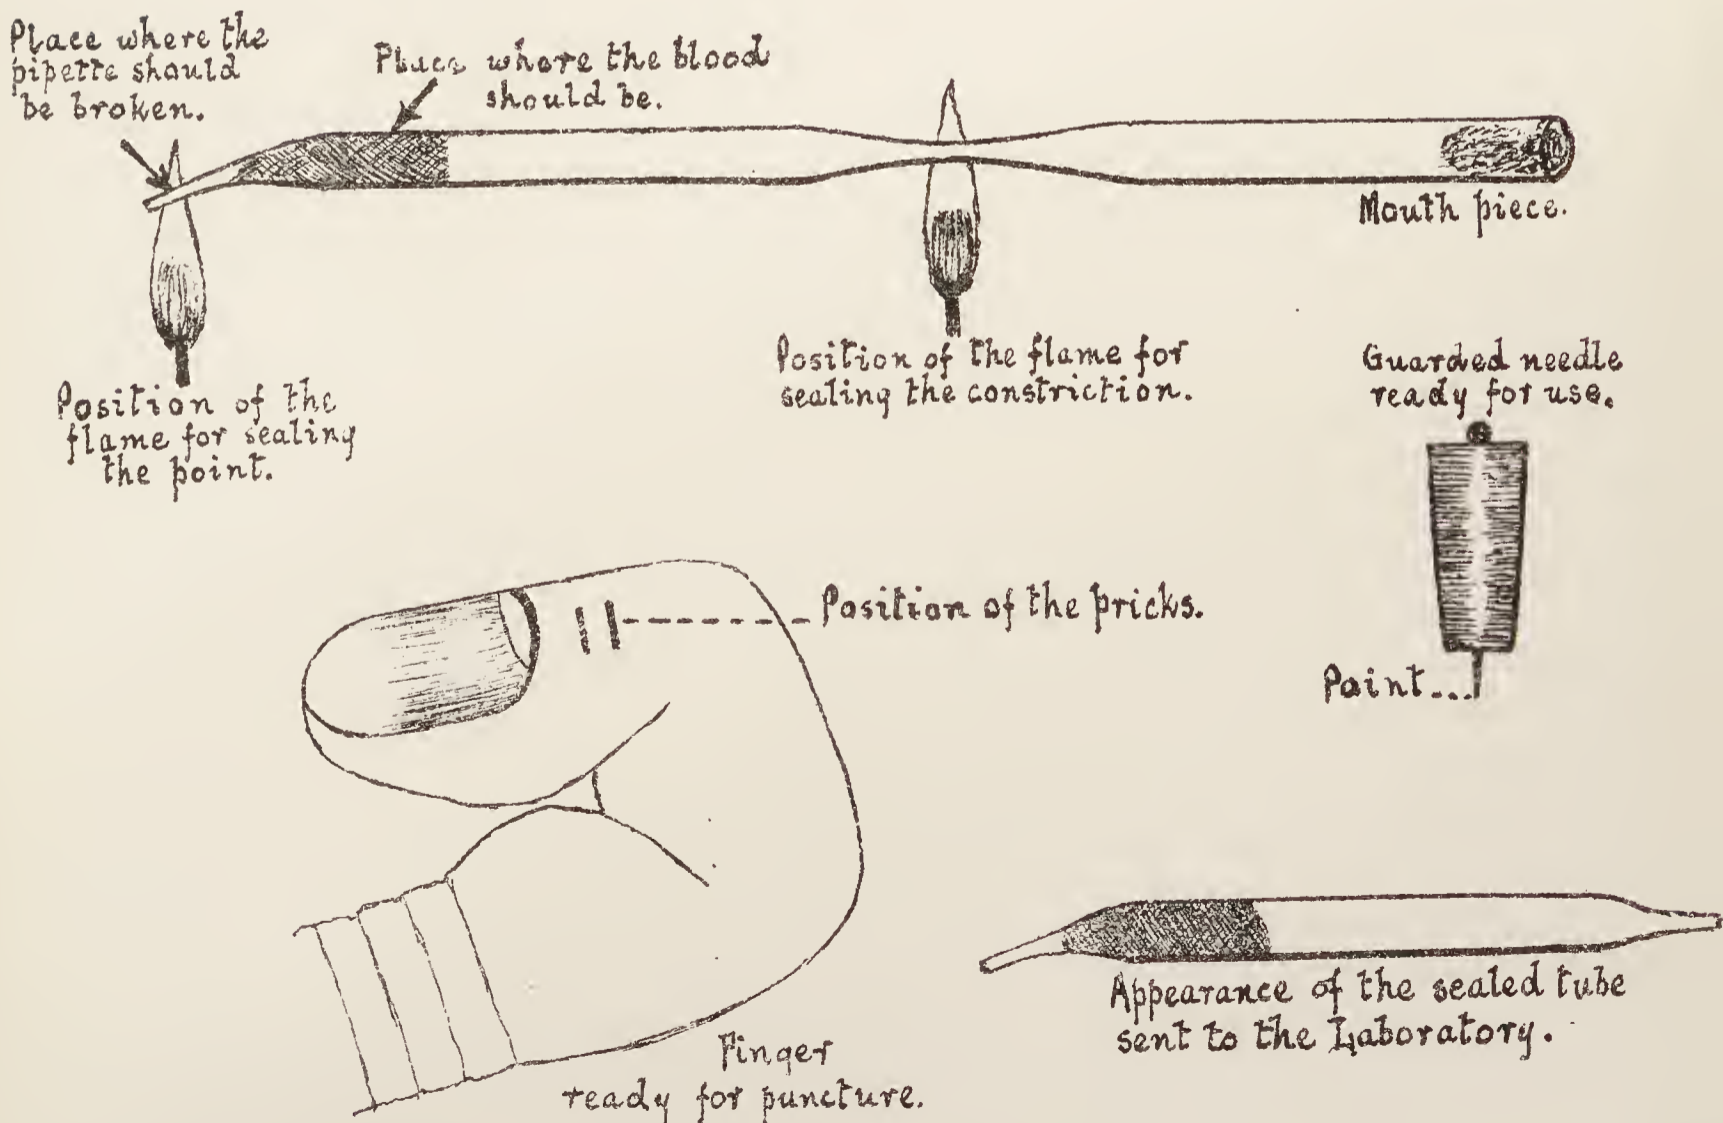 Place where the
pipette should
be broken.
Place where the blood
should be.
Mouth piece.
Position of the
flame for sealing
the point.
Position of the flame for
sealing the constriction.
Guarded needle
ready for use.
Point...
Position of the pricks.
Finger
ready for puncture.
Appearance of the sealed tube
sent to the Laboratory.